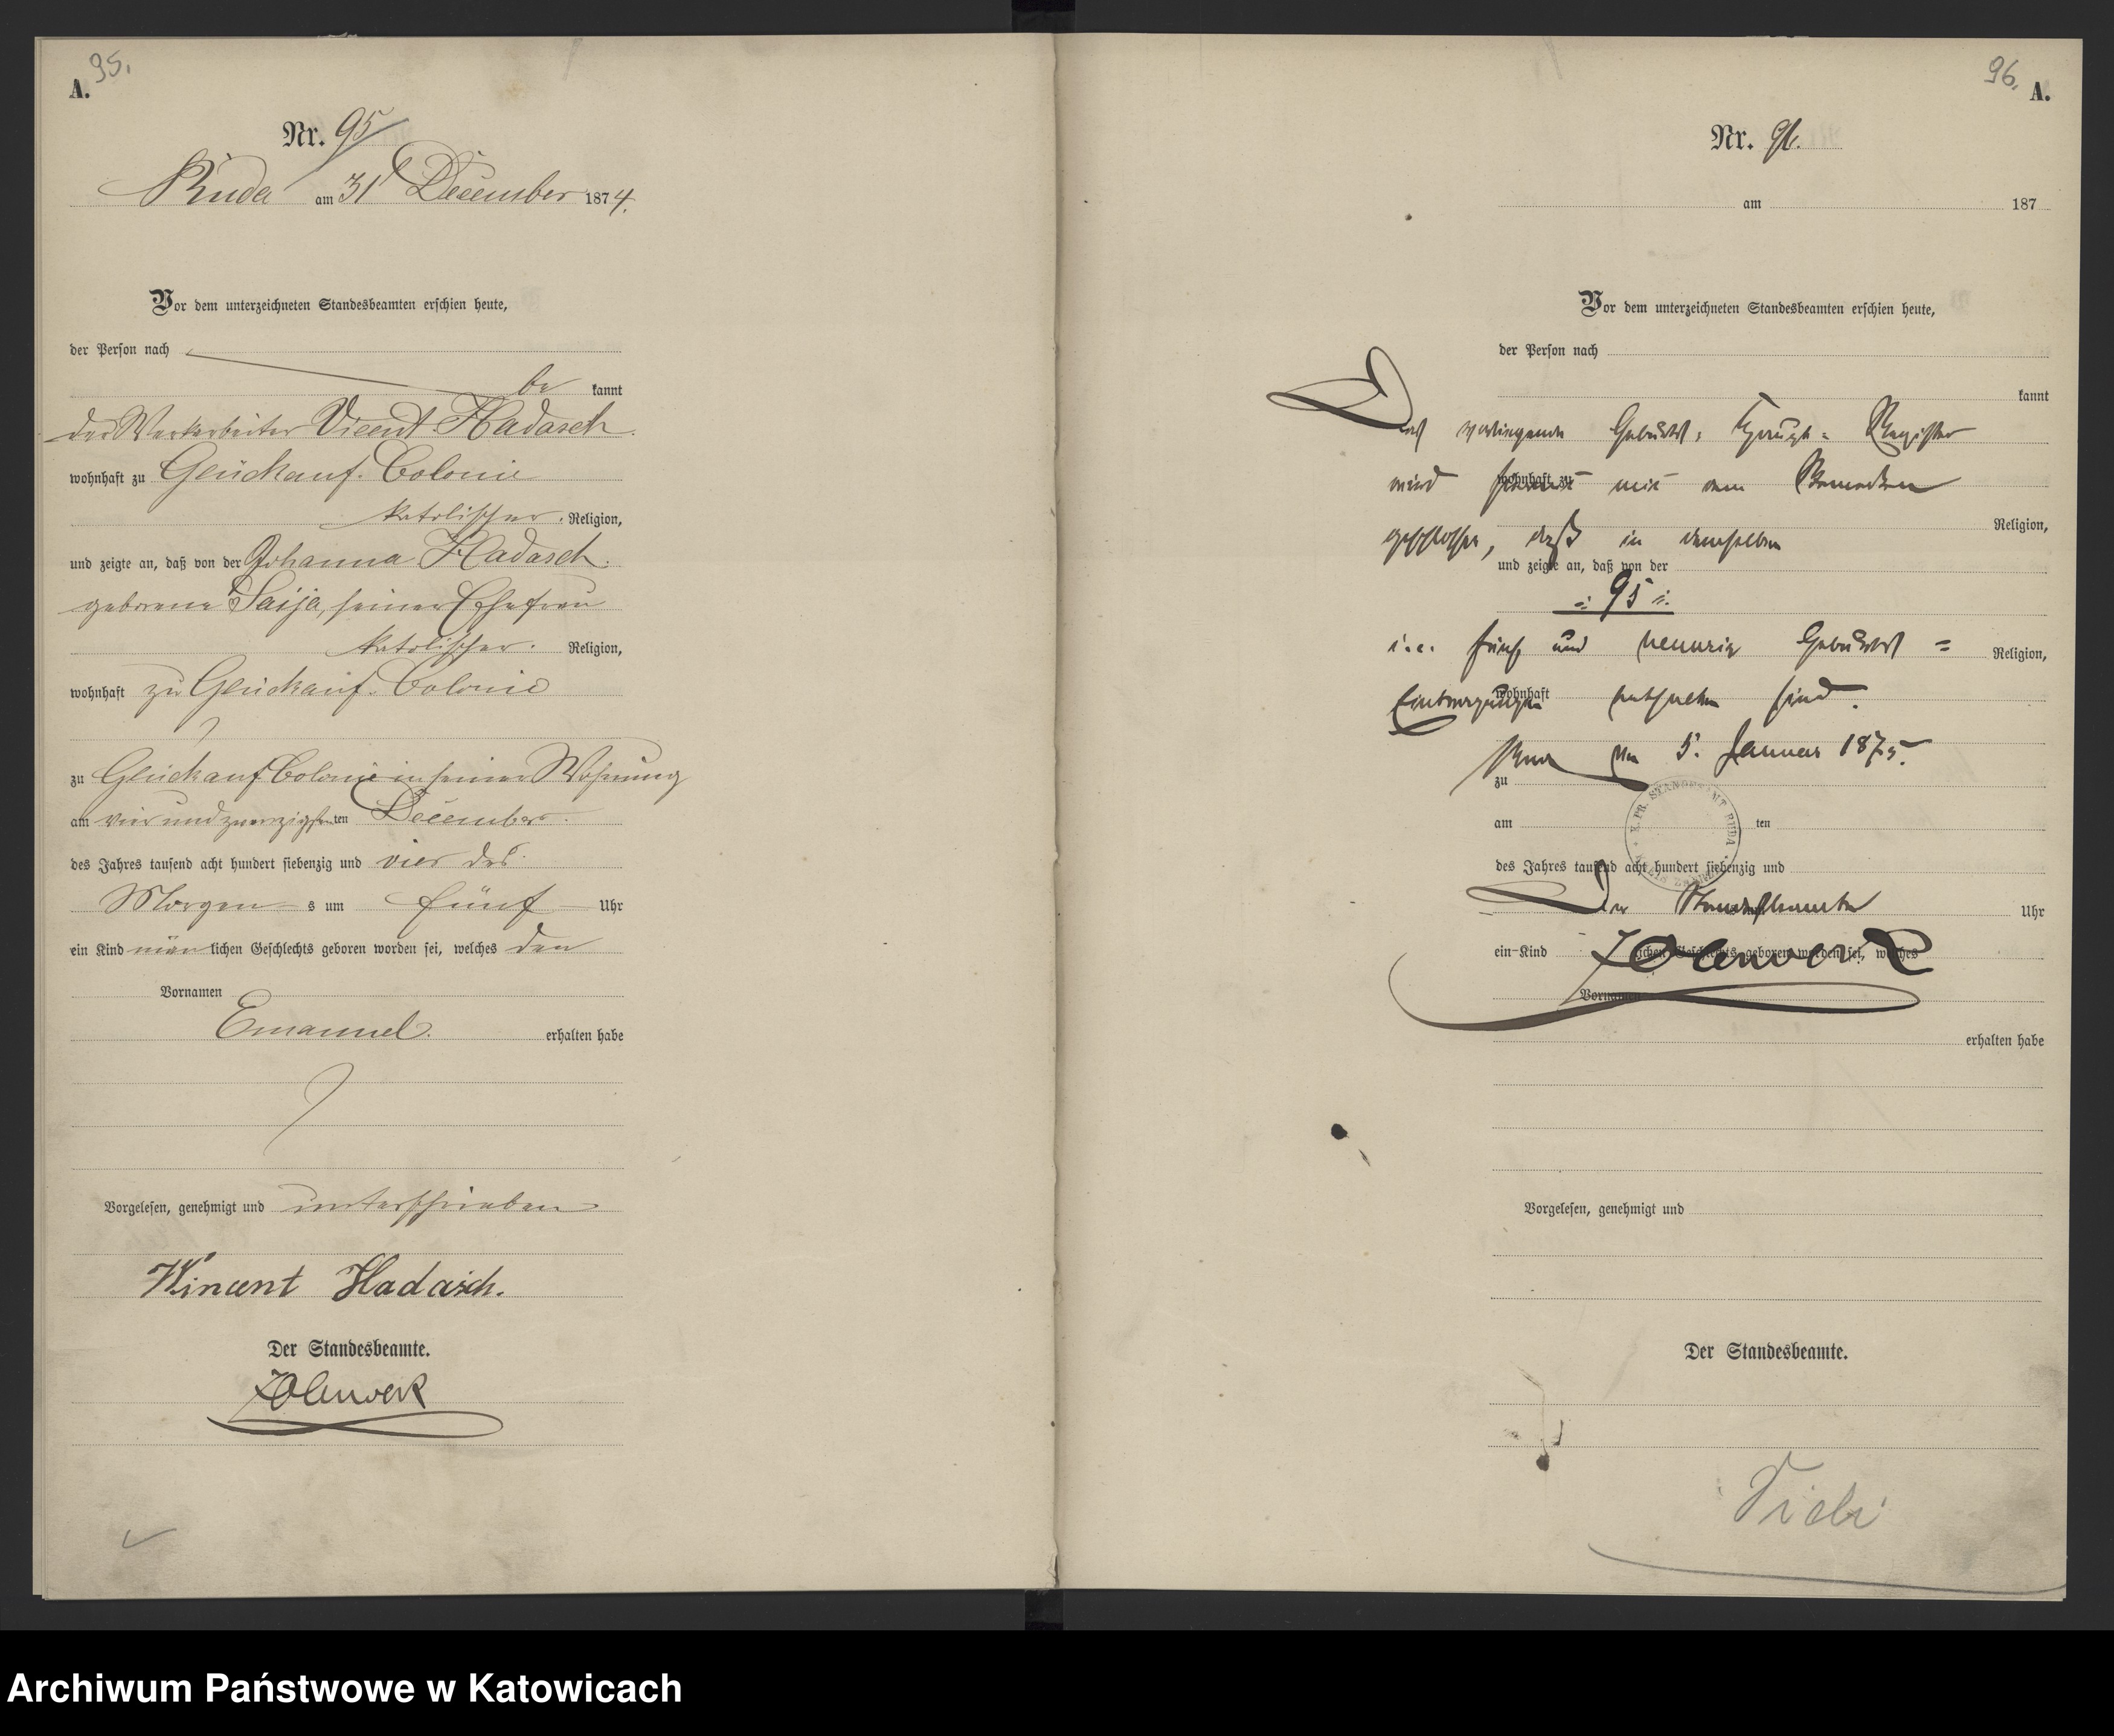 95.
A.
Nr. 95
Ruda am 31t December 1874.
Vor dem unterzeichneten Standesbeamten erschien heute,
der Person nach
be kannt
der Werkarbeiter Vicent Hadasch
wohnhaft zu Glückauf-Colonie
katolischer Religion,
und zeigte an, daß von der Johanna Hadasch
geborene Saija, seiner Ehefrau
katolischer Religion,
wohnhaft zu Glückauf-Colonie
zu Glückauf Colonie in seiner Wohnung
am vier und zwanzigsten ten December
des Jahres tausend acht hundert siebenzig und vier des
Morgen s um fünf Uhr
ein Kind män lichen Geschlechts geboren worden sei, welches den
Vornamen
Emanuel. erhalten habe
Vorgelesen, genehmigt und unterschrieben
Wincent Hadasch.
Der Standesbeamte.
96.
A.
Nr. 96.
am 187
Vor dem unterzeichneten Standesbeamten erschien heute,
der Person nach
kannt
Das vorliegende Geburts-Haupt-Register
wird hiermit mit dem Bemerken
wohnhaft zu
Religion,
geschlossen, daß in demselben
und zeigte an, daß von der
95
i.e. fünf und neunzig Geburts-
Religion,
Eintragungen enthalten sind.
wohnhaft
Ruda den 5. Januar 1875.
zu
K. PR. STANDESAMT RUDA
am ten
des Jahres tausend acht hundert siebenzig und
Der Standesbeamte
Uhr
ein Kind lichen Geschlechts geboren worden sei, welches
Vornamen
erhalten habe
Vorgelesen, genehmigt und
Der Standesbeamte.
Archiwum Państwowe w Katowicach